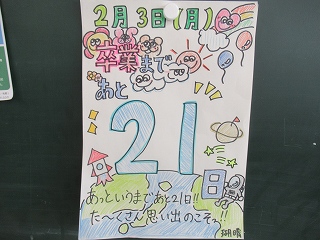 2月3日(月)
卒業まで
あと
21
日
あっというまであと21日!!
た〜くさん思い出のこそっ!!